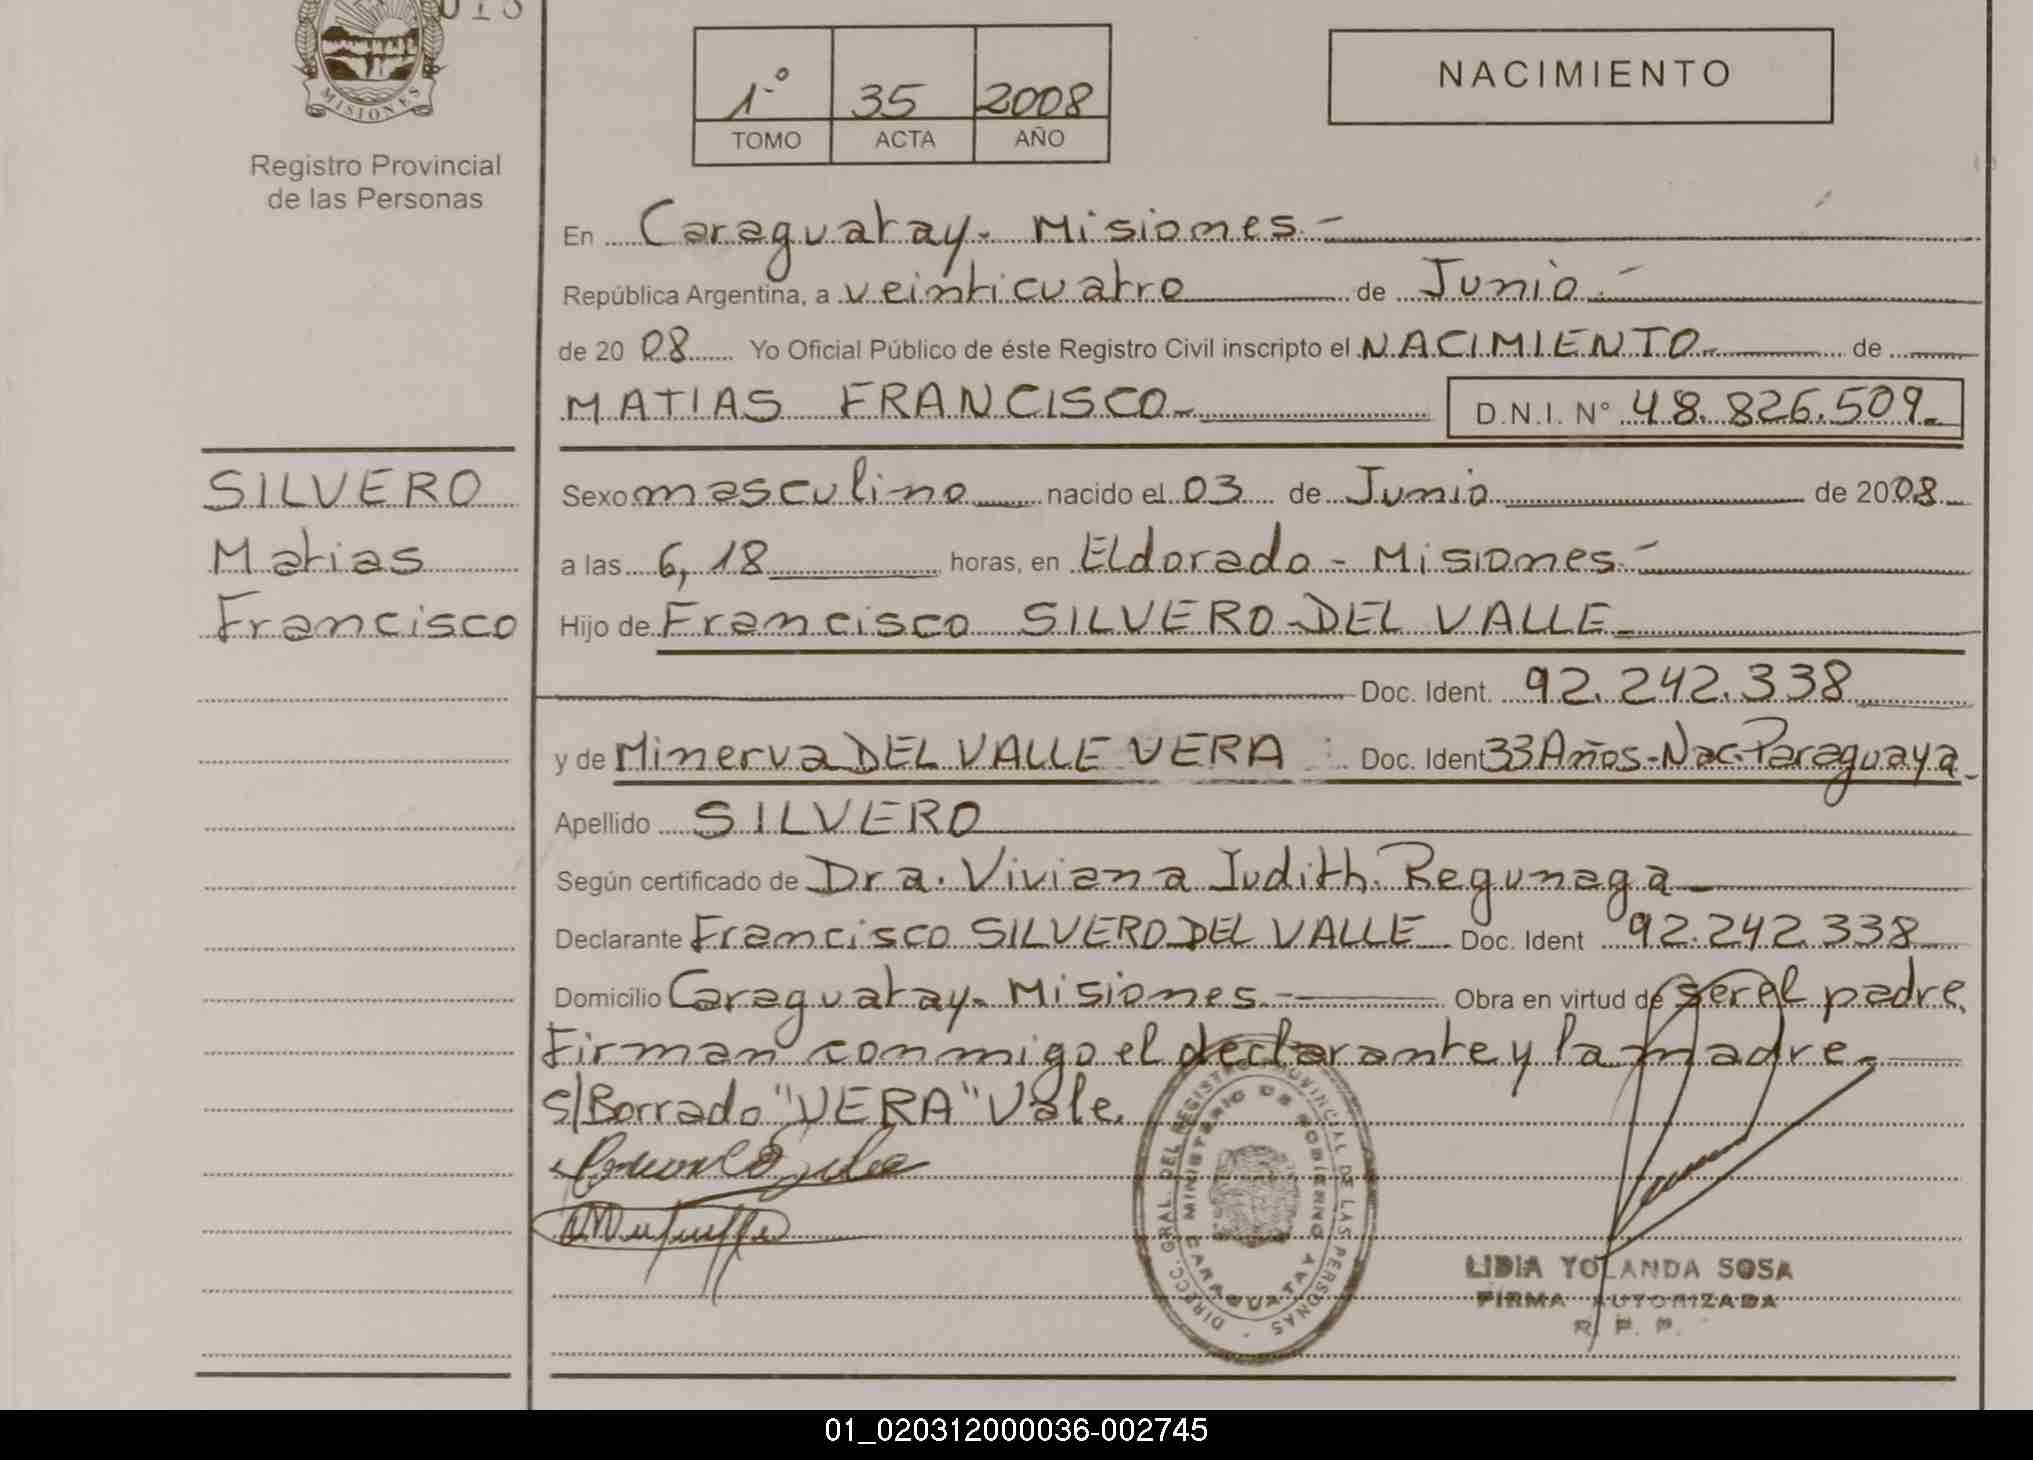 MISIONES
Registro Provincial
de las Personas
1º 35 2008
TOMO ACTA AÑO
NACIMIENTO
En Caraguatay - Misiones.-
República Argentina, a veinticuatro de Junio.-
de 20 08 Yo Oficial Público de éste Registro Civil inscripto el NACIMIENTO de
MATIAS FRANCISCO D.N.I. Nº 48.826.509.
SILVERO
Matias
Francisco
Sexo masculino nacido el 03 de Junio de 2008
a las 6,18 horas, en ELdorado - Misiones.-
Hijo de Francisco SILVERO DEL VALLE
Doc. Ident. 92.242.338
y de Minerva DEL VALLE VERA Doc. Ident 33 Años-Nac. Paraguaya
Apellido SILVERO
Según certificado de Dra. Viviana Judith Regunaga
Declarante Francisco SILVERO DEL VALLE Doc. Ident 92.242.338
Domicilio Caraguatay - Misiones.- Obra en virtud de ser el padre.
Firman conmigo el declarante y la madre.
s/Borrado "VERA" Vale.
DIRECC. GRAL. DEL REGISTRO PROVINCIAL DE LAS PERSONAS
MINISTERIO DE GOBIERNO
CARAGUATAY
LIDIA YOLANDA SOSA
FIRMA AUTORIZADA
R. P. P.
01_020312000036-002745